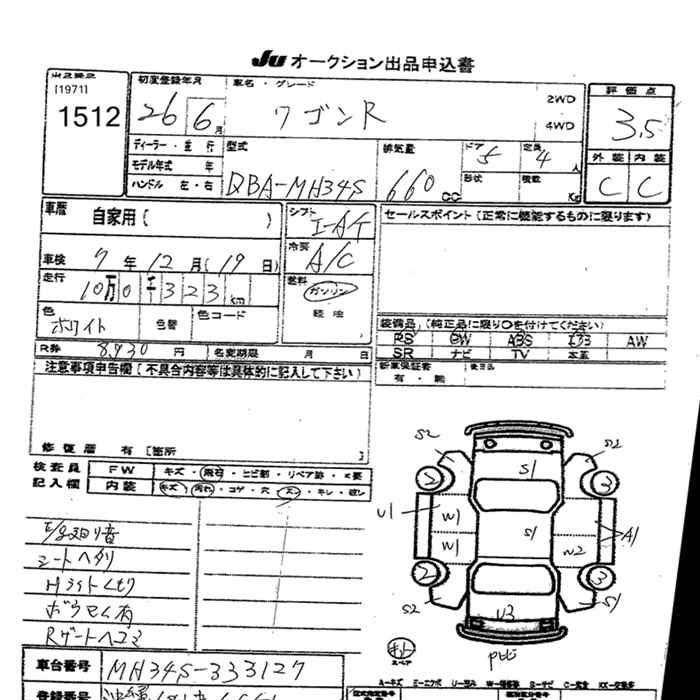 JU オークション出品申込書
[1971]
1512
初度登録年月
26 6月
車名・グレード
ワゴンR
2WD
4WD
評価点
3.5
外装 内装
C C
モデル年式 年
ハンドル 左・右
型式
DBA-MH34S
排気量
660 cc
ドア
5
定員
4 人
形状
積載 Kg
車歴 自家用 ( )
シフト
I-AT
冷房
A/C
セールスポイント (正常に機能するものに限ります)
車検 7 年 12 月 (19 日)
走行
10万0千323 km
燃料
ガソリン
軽油
色
ホワイト
色替
色コード
装備品 (純正品に限り○を付けてください)
PS PW ABS エアB AW
SR ナビ TV 本革
R券 8,930 円
名変期限 月 日
新車保証書
有・無
注意事項申告欄 (不具合内容等は具体的に記入して下さい)
修復歴 有 [箇所 ]
検査員
記入欄
FW キズ・飛石・ヒビ割・リペア跡・X要
内装 キズ・汚れ・コゲ・穴・スレ・キレ・破レ
E/g廻り音
シートヘタリ
Hライトくもり
ボウマく有
Rゲートヘコミ
S2 S2
S1
2 3
U1 W1 S1 A1
W1 W2
2 3
S2 S1
U3
スペア
車台番号 MH34S-333127
登録番号
A-キズ